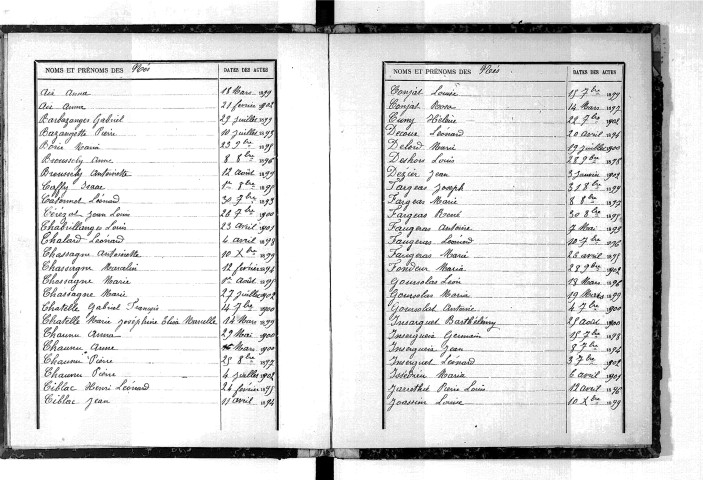 NOMS ET PRÉNOMS DES Nés DATES DES ACTES
Aré Anna 18 Mars 1899
Aré Anna 21 février 1902
Barbazanges Gabriel 29 juillet 1899
Bazangette Pierre 10 juillet 1893
Borie Marie 23 9bre 1895
Broussely Anne 8 8bre 1896
Broussely Antoinette 12 août 1899
Caffy Isaac 1er 8bre 1895
Catonnet Léonard 30 7bre 1893
Cérézot Jean Louis 28 7bre 1900
Chabrillanges Louis 23 avril 1901
Chalard Léonard 6 avril 1898
Chassagne Antoinette 10 Xbre 1899
Chassagne Marcelin 12 février 1894
Chassagne Marie 1er Août 1895
Chassagne Marie 27 juillet 1902
Chatelle Gabriel François 4 7bre 1900
Chatelle Marie Joséphine Elisa Marcelle 14 Mars 1899
Chaunu Anna 29 Mai 1900
Chaunu Anne Mars 1900
Chaunu Pierre 25 8bre 1893
Chaunu Pierre 4 juillet 1902
Ciblac Henri Léonard 24 février 1895
Ciblac Jean 11 avril 1894
NOMS ET PRÉNOMS DES Nés DATES DES ACTES
Conjat Louise 15 7bre 1899
Conjat Rosa 14 Mars 1897
Cueny Hélène 21 7bre 1902
Decoux Léonard 20 avril 1896
Delord Marie 19 juillet 1900
Deshors Louis 28 9bre 1898
Dezier Jean 3 Janvier 1902
Fargeas Joseph 31 8bre 1899
Fargeas Marie 8 8bre 1897
Fargeas René 30 8bre 1895
Faugeras Antoine 7 Mai 1899
Faugeras Léonard 10 7bre 1896
Faugeras Marie 26 avril 1895
Fondeur Maria 28 9bre 1902
Gounsolas Léon 18 Mars 1896
Gounsolas Maria 19 Mars 1899
Gounsolat Antoine 4 7bre 1900
Insarguet Barthélémy 25 Août 1900
Insergueix Germain 15 7bre 1898
Insergueix Jean 8 7bre 1894
Inserguet Léonard 3 7bre 1902
Marie 6 avril 1901
Jarrethie Pierre Louis 12 avril 1896
Joassin Louise 10 Xbre 1899